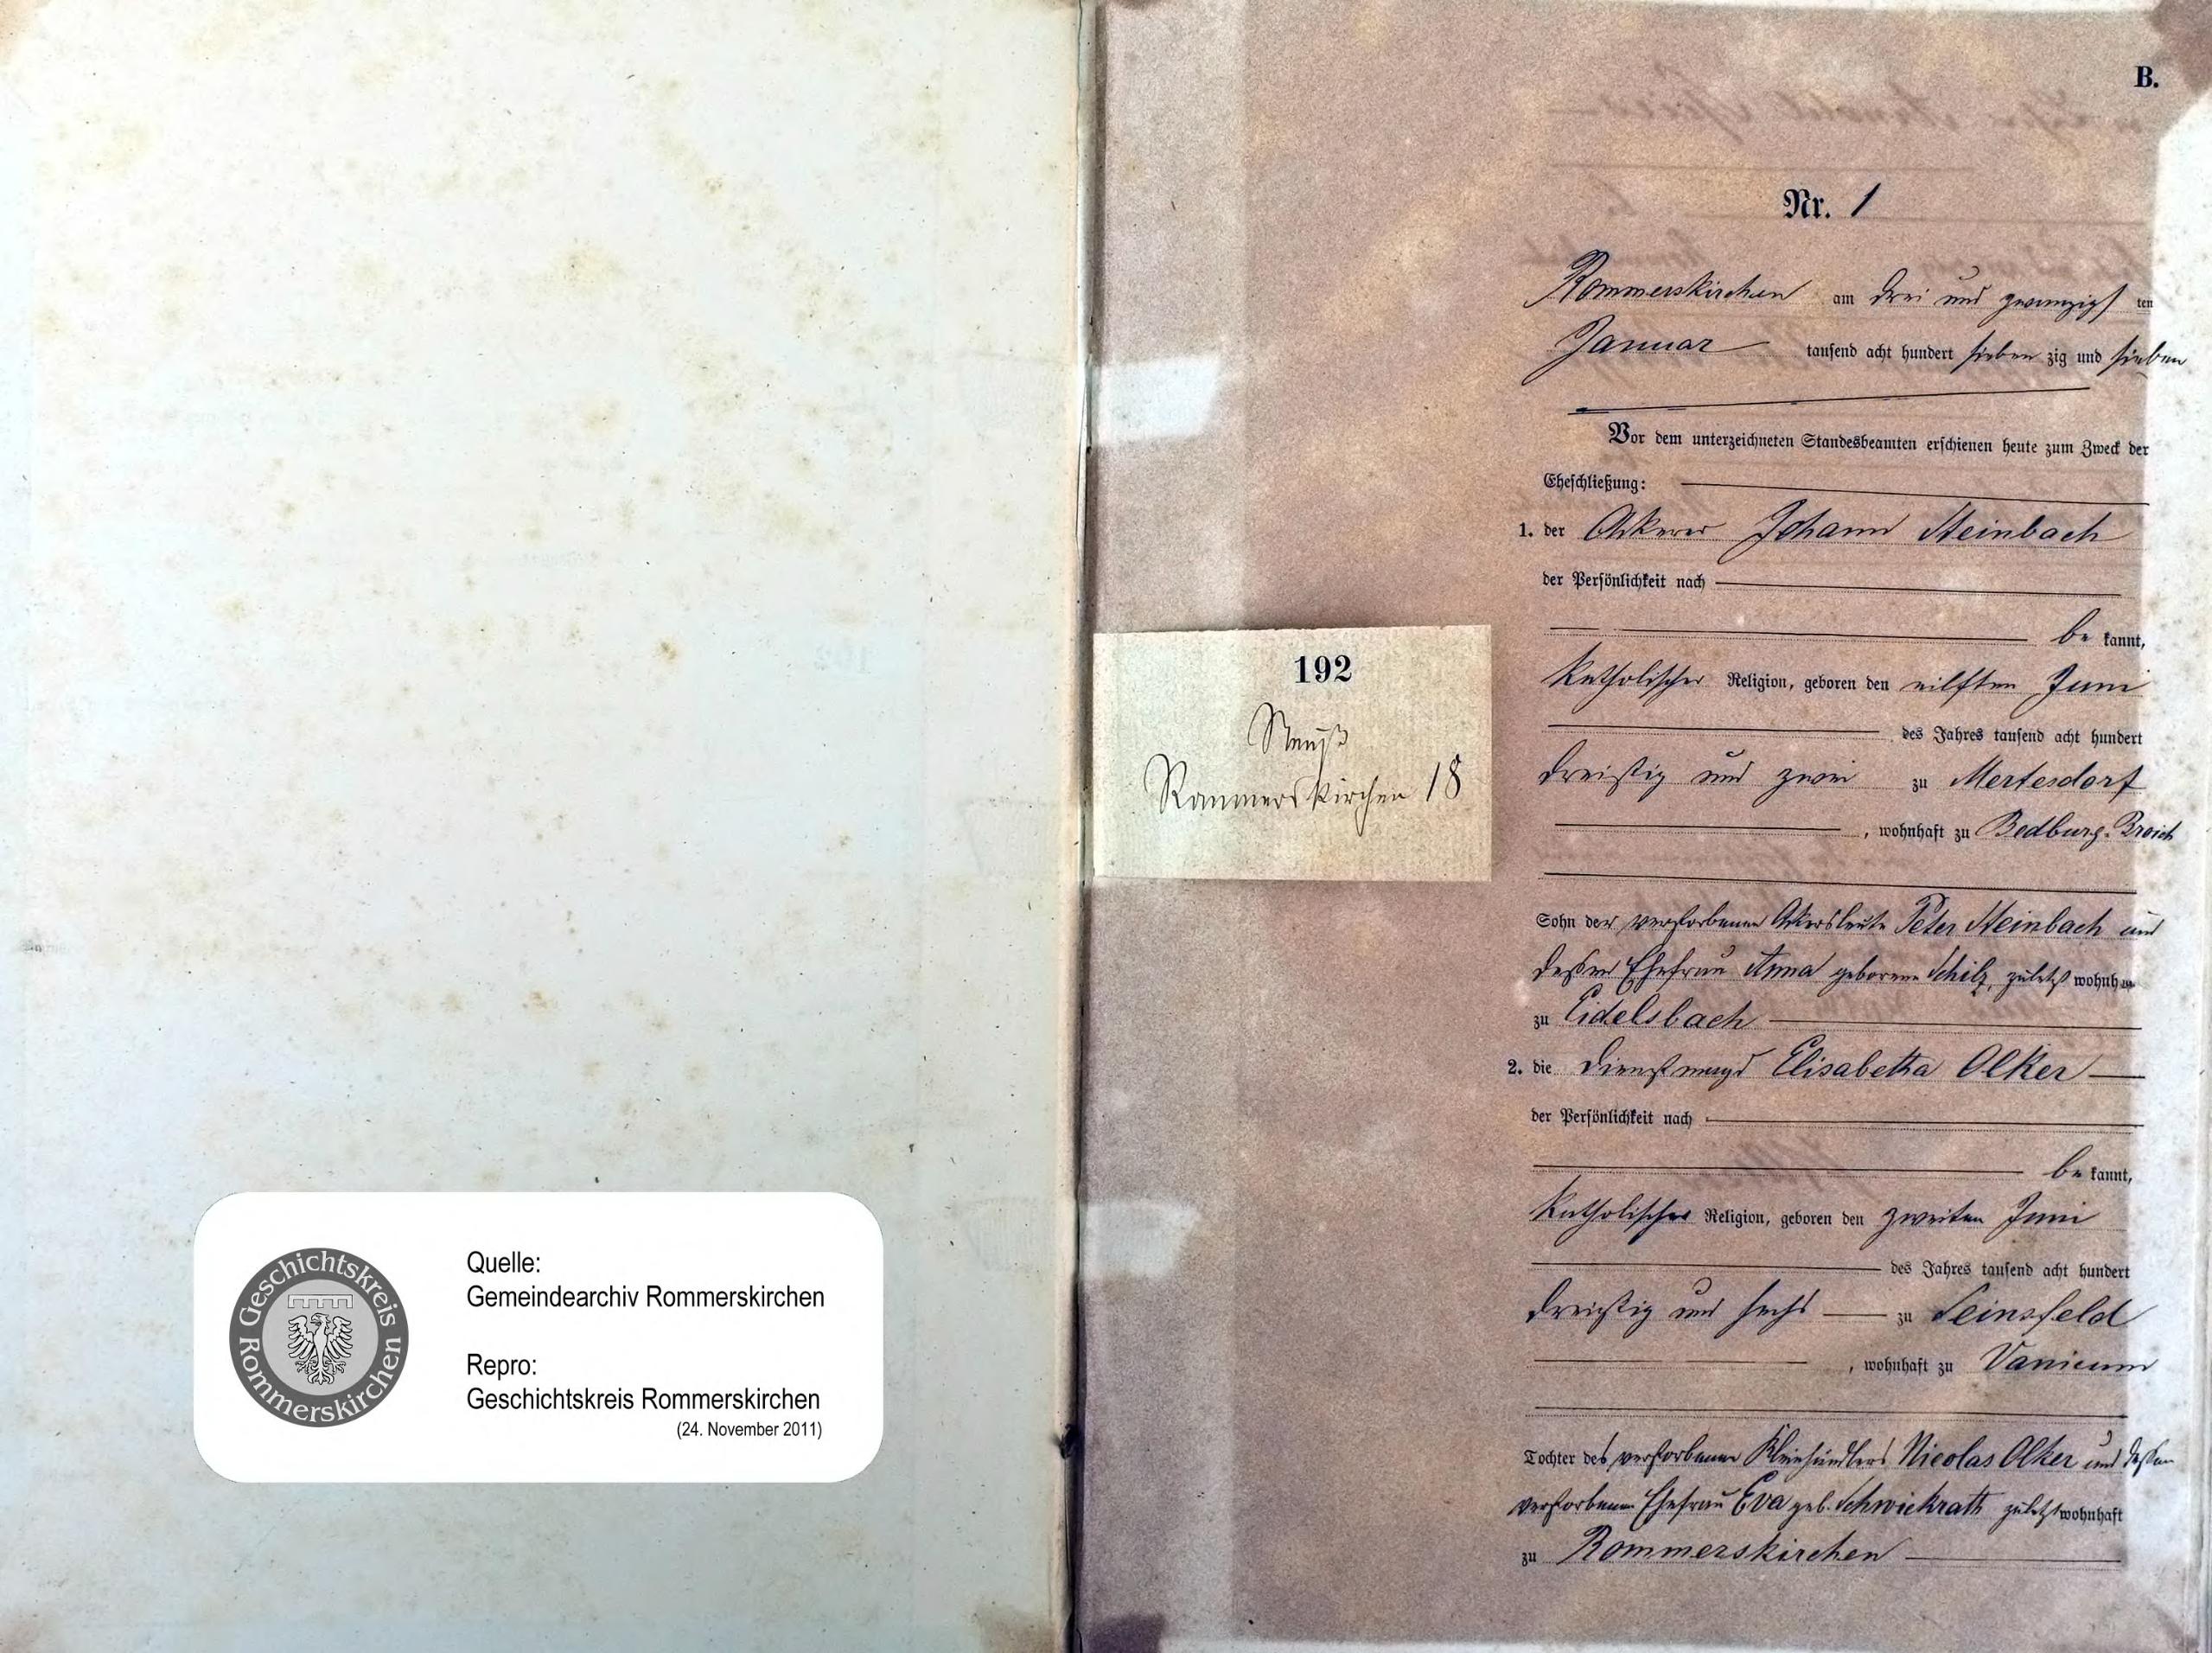 B.
Nr. 1
Rommerskirchen am drei und zwanzigsten
Januar tausend acht hundert siebenzig und sieben
Vor dem unterzeichneten Standesbeamten erschienen heute zum Zweck der
Eheschließung:
1. der Ackerer Johann Steinbach
der Persönlichkeit nach
bekannt,
katholischer Religion, geboren den eilften Juni
des Jahres tausend acht hundert
dreißig und zwei zu Mertesdorf
, wohnhaft zu Bedburg-Broich
Sohn der verstorbenen Ackersleute Peter Steinbach und
dessen Ehefrau Anna geborene Schilz, zuletzt wohnh
zu Eidelsbach
2. die Dienstmagd Elisabetha Olker
der Persönlichkeit nach
bekannt,
katholischer Religion, geboren den zweiten Juni
des Jahres tausend acht hundert
dreißig und sechs zu Seinsfeld
, wohnhaft zu Vanicum
Tochter des verstorbenen Kleinhändlers Nicolas Olker und dessen
verstorbenen Ehefrau Eva geb. Schwickrath zuletzt wohnhaft
zu Rommerskirchen
192
Neuß
Rommerskirchen 18
Geschichtskreis Rommerskirchen
Quelle:
Gemeindearchiv Rommerskirchen
Repro:
Geschichtskreis Rommerskirchen
(24. November 2011)